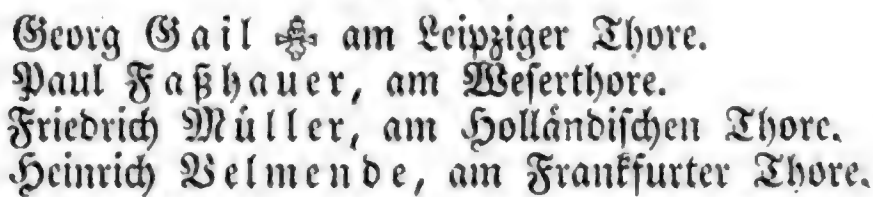 Georg Gail ✠ am Leipziger Thore.
Paul Faßhauer, am Weserthore.
Friedrich Müller, am Holländischen Thore.
Heinrich Velmende, am Frankfurter Thore.